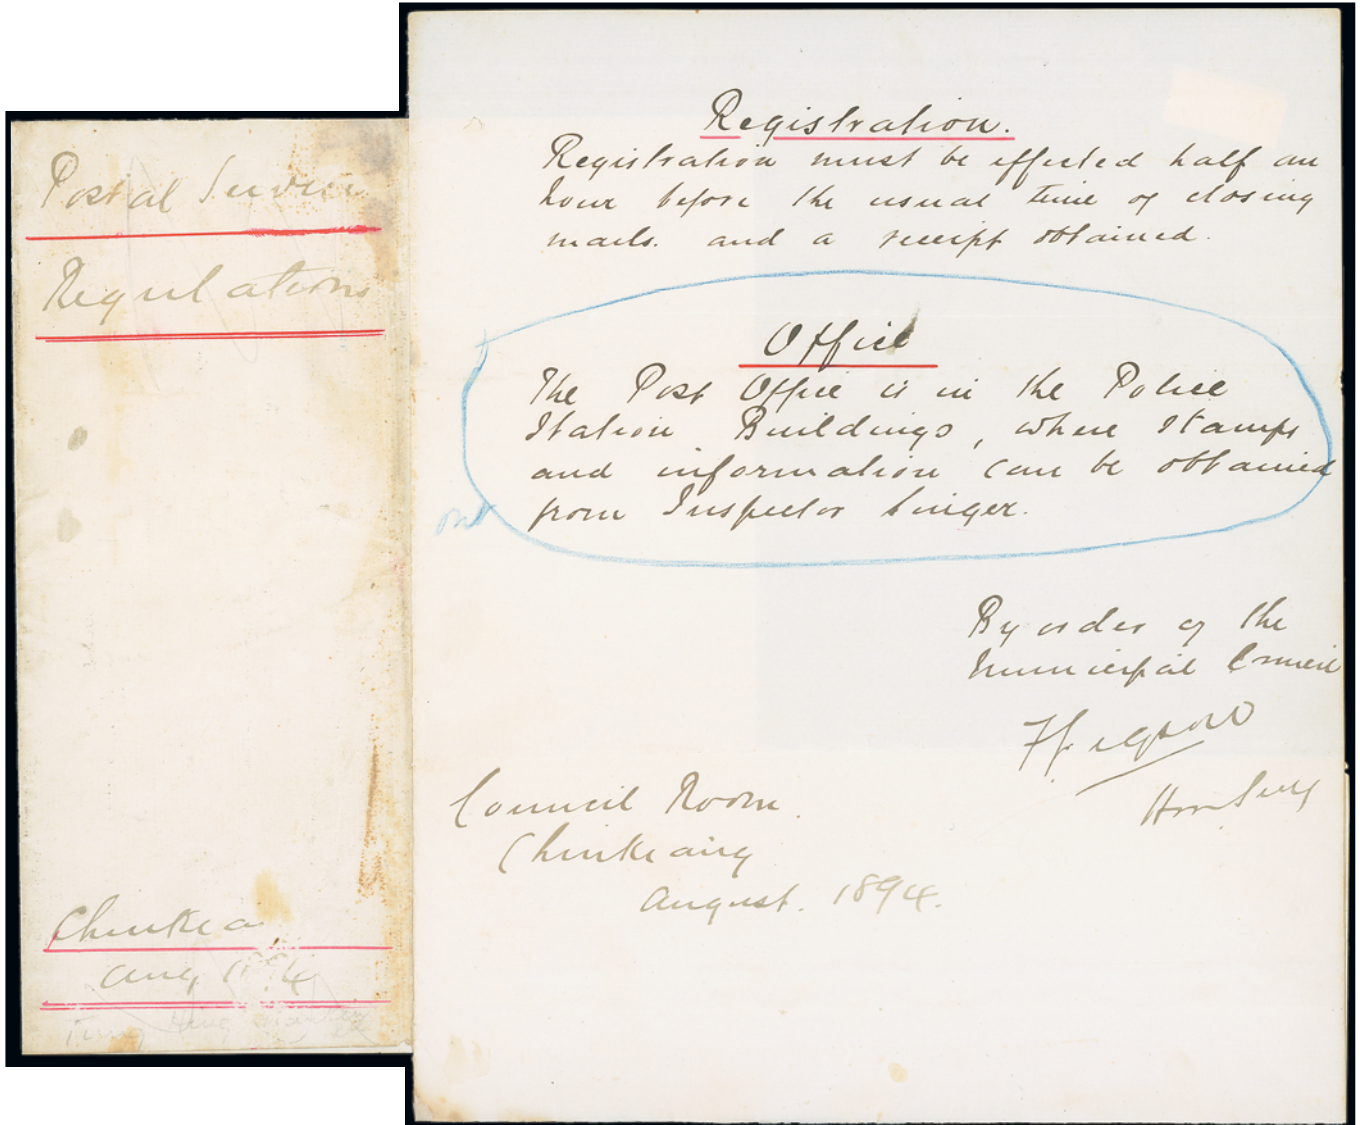 Postal Service
Regulations
Chinkea
Aug 1894
Registration.
Registration must be effected half an
hour before the usual time of closing
mails. and a receipt obtained.
Office
The Post Office is in the Police
Station Buildings, where stamps
and information can be obtained
from Inspector Linger.
By order of the
Municipal Council
Hon Secy
Council Room.
Chinkiang
August. 1894.